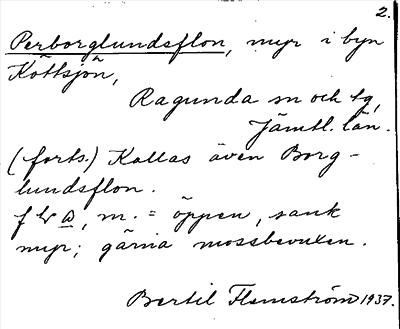 2.
Perborglundsflon, myr i byn
Köttsjön,
Ragunda sn och tg,
Jämtl. län.
(forts.) Kallas även Borg-
lundsflon.
m. = öppen, sank
myr; gärna mossbevuxen.
Bertil Flemström 1937.